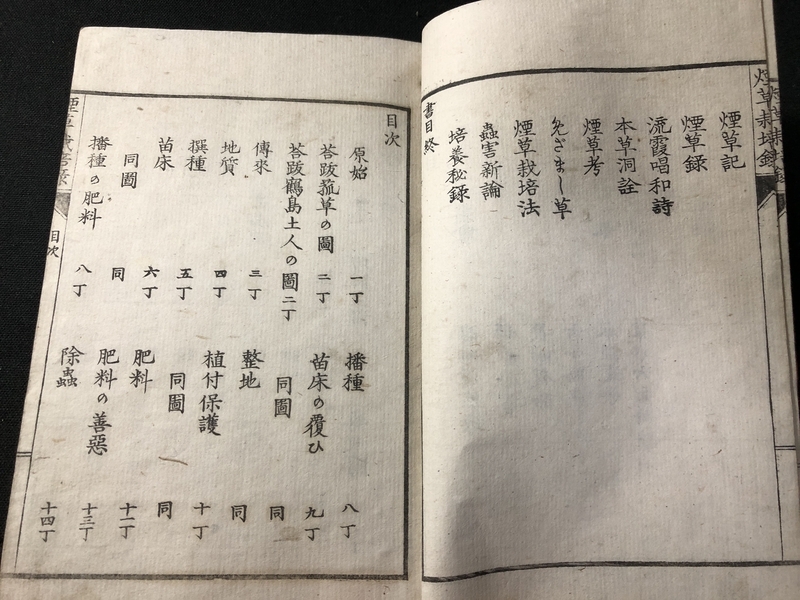 煙草栽培錄
煙草記
煙草錄
流霞唱和詩
本草洞詮
煙草考
免ざまし草
煙草栽培法
蟲害新論
培養秘錄
書目終
目次
原始 一丁
苔跋菰草の圖 二丁
苔跋鶴島土人の圖 二丁
傳來 三丁
地質 四丁
撰種 五丁
苗床 六丁
同圖 同
播種の肥料 八丁
播種 八丁
苗床の覆ひ 九丁
同圖 同
整地 同
植付保護 十丁
同圖 同
肥料 十一丁
肥料の善惡 十三丁
除蟲 十四丁
目次